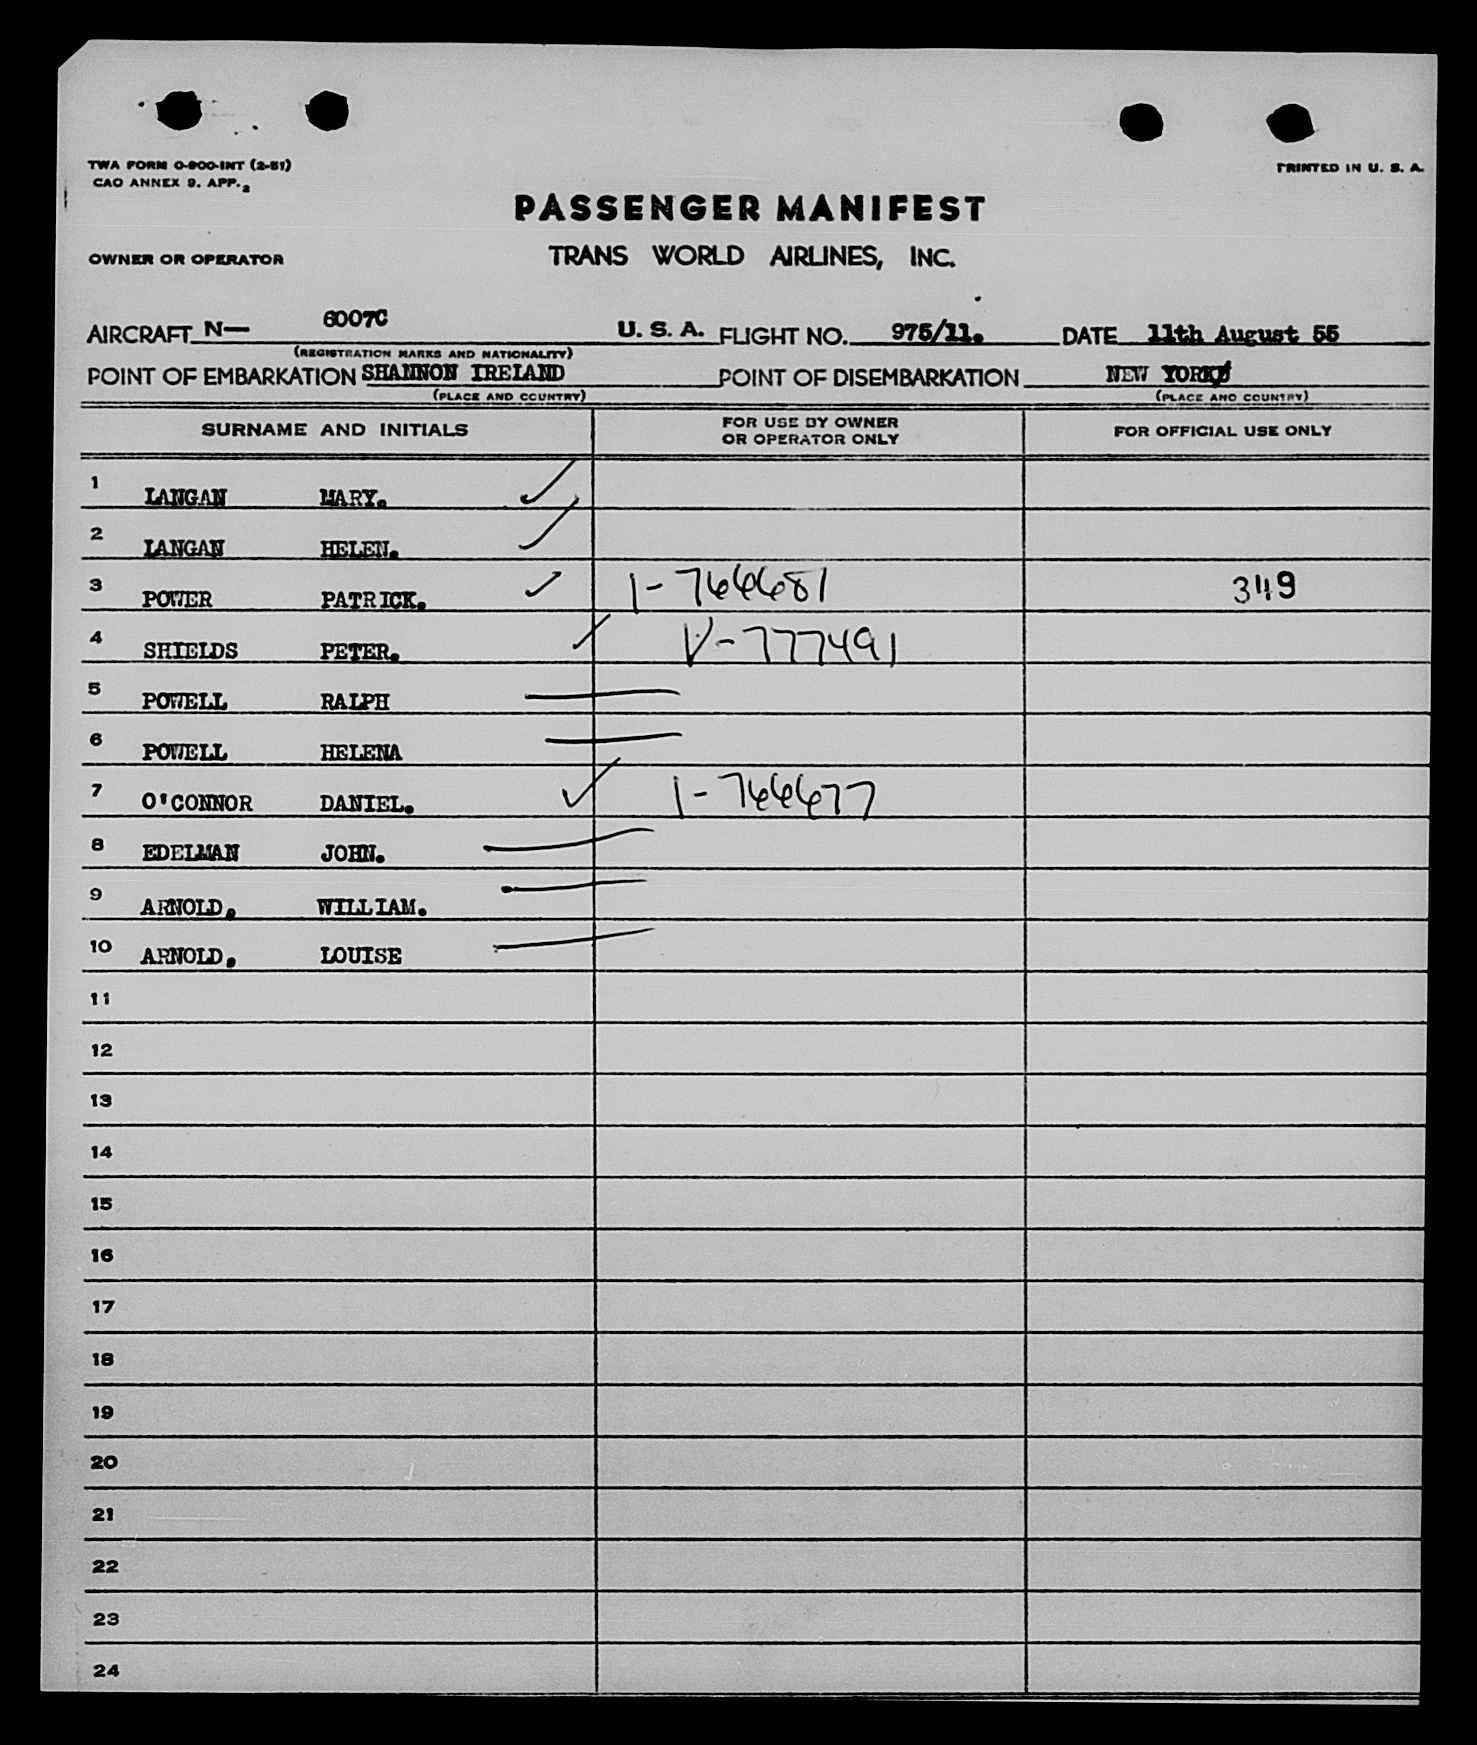 TWA FORM O-900-INT (2-51)
CAO ANNEX 9. APP. 2
PRINTED IN U. S. A.
PASSENGER MANIFEST
OWNER OR OPERATOR
TRANS WORLD AIRLINES, INC.
AIRCRAFT N— 6007C U. S. A. FLIGHT NO. 975/11. DATE 11th August 55
(REGISTRATION MARKS AND NATIONALITY)
POINT OF EMBARKATION SHANNON IRELAND POINT OF DISEMBARKATION NEW YORK
(PLACE AND COUNTRY) (PLACE AND COUNTRY)
SURNAME AND INITIALS FOR USE BY OWNER OR OPERATOR ONLY FOR OFFICIAL USE ONLY
1 LANGAN MARY.
2 LANGAN HELEN.
3 POWER PATRICK. 1-766681 349
4 SHIELDS PETER. V-777491
5 POWELL RALPH
6 POWELL HELENA
7 O'CONNOR DANIEL. 1-766677
8 EDELMAN JOHN.
9 ARNOLD. WILLIAM.
10 ARNOLD. LOUISE
11
12
13
14
15
16
17
18
19
20
21
22
23
24